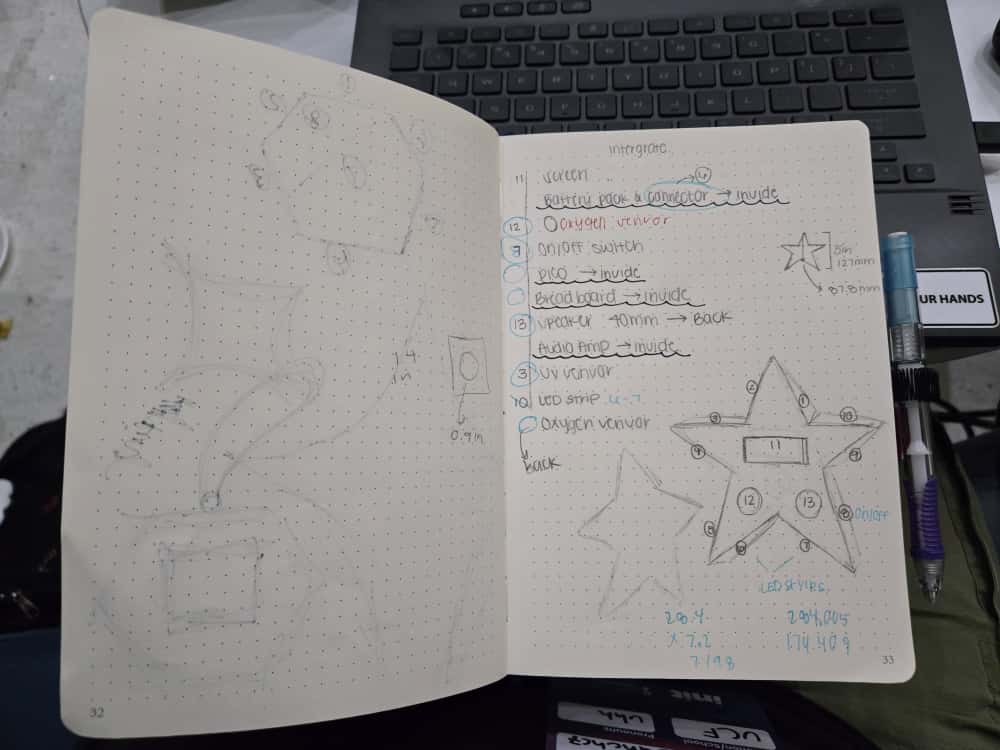 32
1.4
in
0.9in
Intergrate
11 screen
Battery pack & connector → inside
4
12 Oxygen sensor
On/Off switch
PICO → inside
Breadboard → inside
13 speaker 40mm → Back
Audio Amp → inside
3 UV sensor
10 LED strip 6-7
Oxygen sensor
Back
5in
127mm
87.8mm
2
1
3
10
4
9
11
12
13
5
8 On/Off
6
7
LED strips
28.4
x 7.2
7198
284.005
174.409
33
UR HANDS
init
uhh
Pronouns
UCF